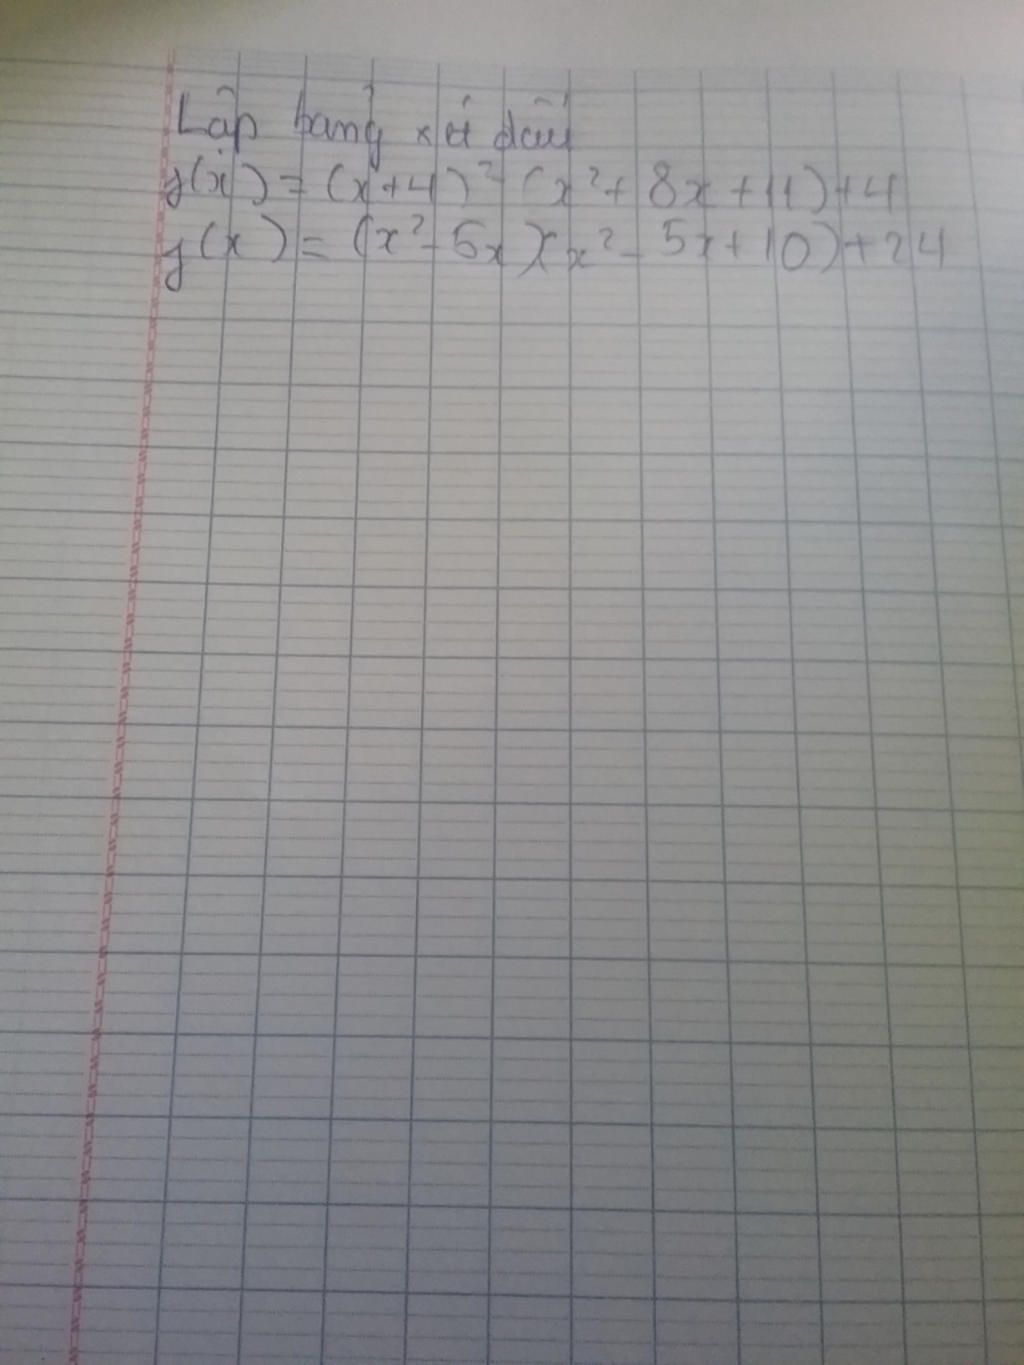 Lập bảng xét dấu
y(x) = (x+4)² (x² + 8x + 11) + 4
y(x) = (x² - 5x)(x² - 5x + 10) + 24